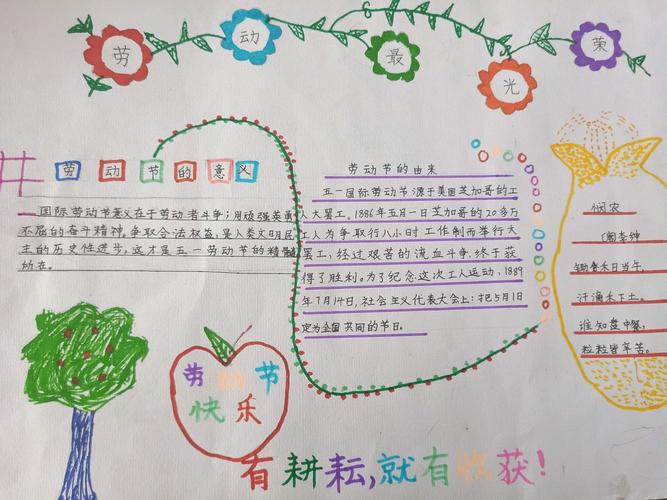 劳动最光荣
劳动节的意义
国际劳动节意义在于劳动者斗争;用顽强英勇
不屈的奋斗精神,争取合法权益,是人类文明民
主的历史性进步,这才是五一劳动节的精髓
所在。
劳动节的由来
五一国际劳动节源于美国芝加哥的工
人大罢工。1886年五月一日芝加哥的20多万
工人为争取行八小时工作制而举行大
罢工,经过艰苦的流血斗争,终于获
得了胜利。为了纪念这次工人运动,1889
年7月14日,社会主义代表大会上:把5月1日
定为全国共同的节日。
悯农
锄禾日当午,
汗滴禾下土。
谁知盘中餐,
粒粒皆辛苦。
劳动节
快乐
有耕耘,就有收获!